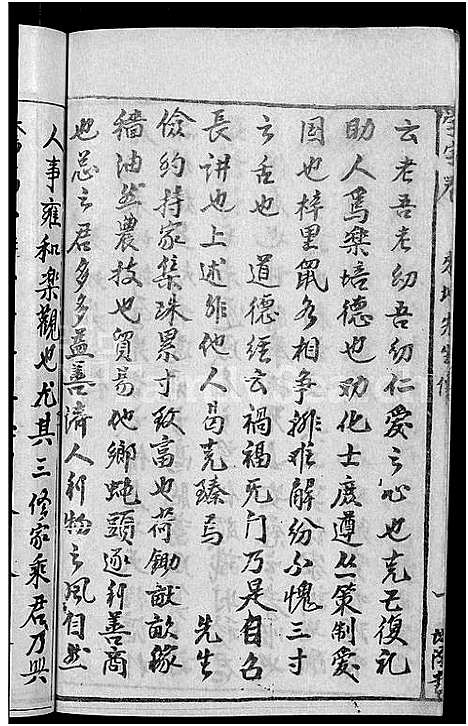 云老吾老幼吾幼仁爱之心也克己復礼
助人爲樂培德也劝化士庶遵从策制爱
国也梓里鼠名相争排难解纷不愧三寸
之舌也　道德經云禍福无门乃是自召
長讲也上述非他人曷克臻焉　　先生
儉约持家集珠累寸致富也荷锄畝畝稼
穡油然農技也貿易他鄉蝇頭逐利善商
也总云君多多益善濟人利物之风自然
人事雍和樂觀也尤其三修家乘君乃興